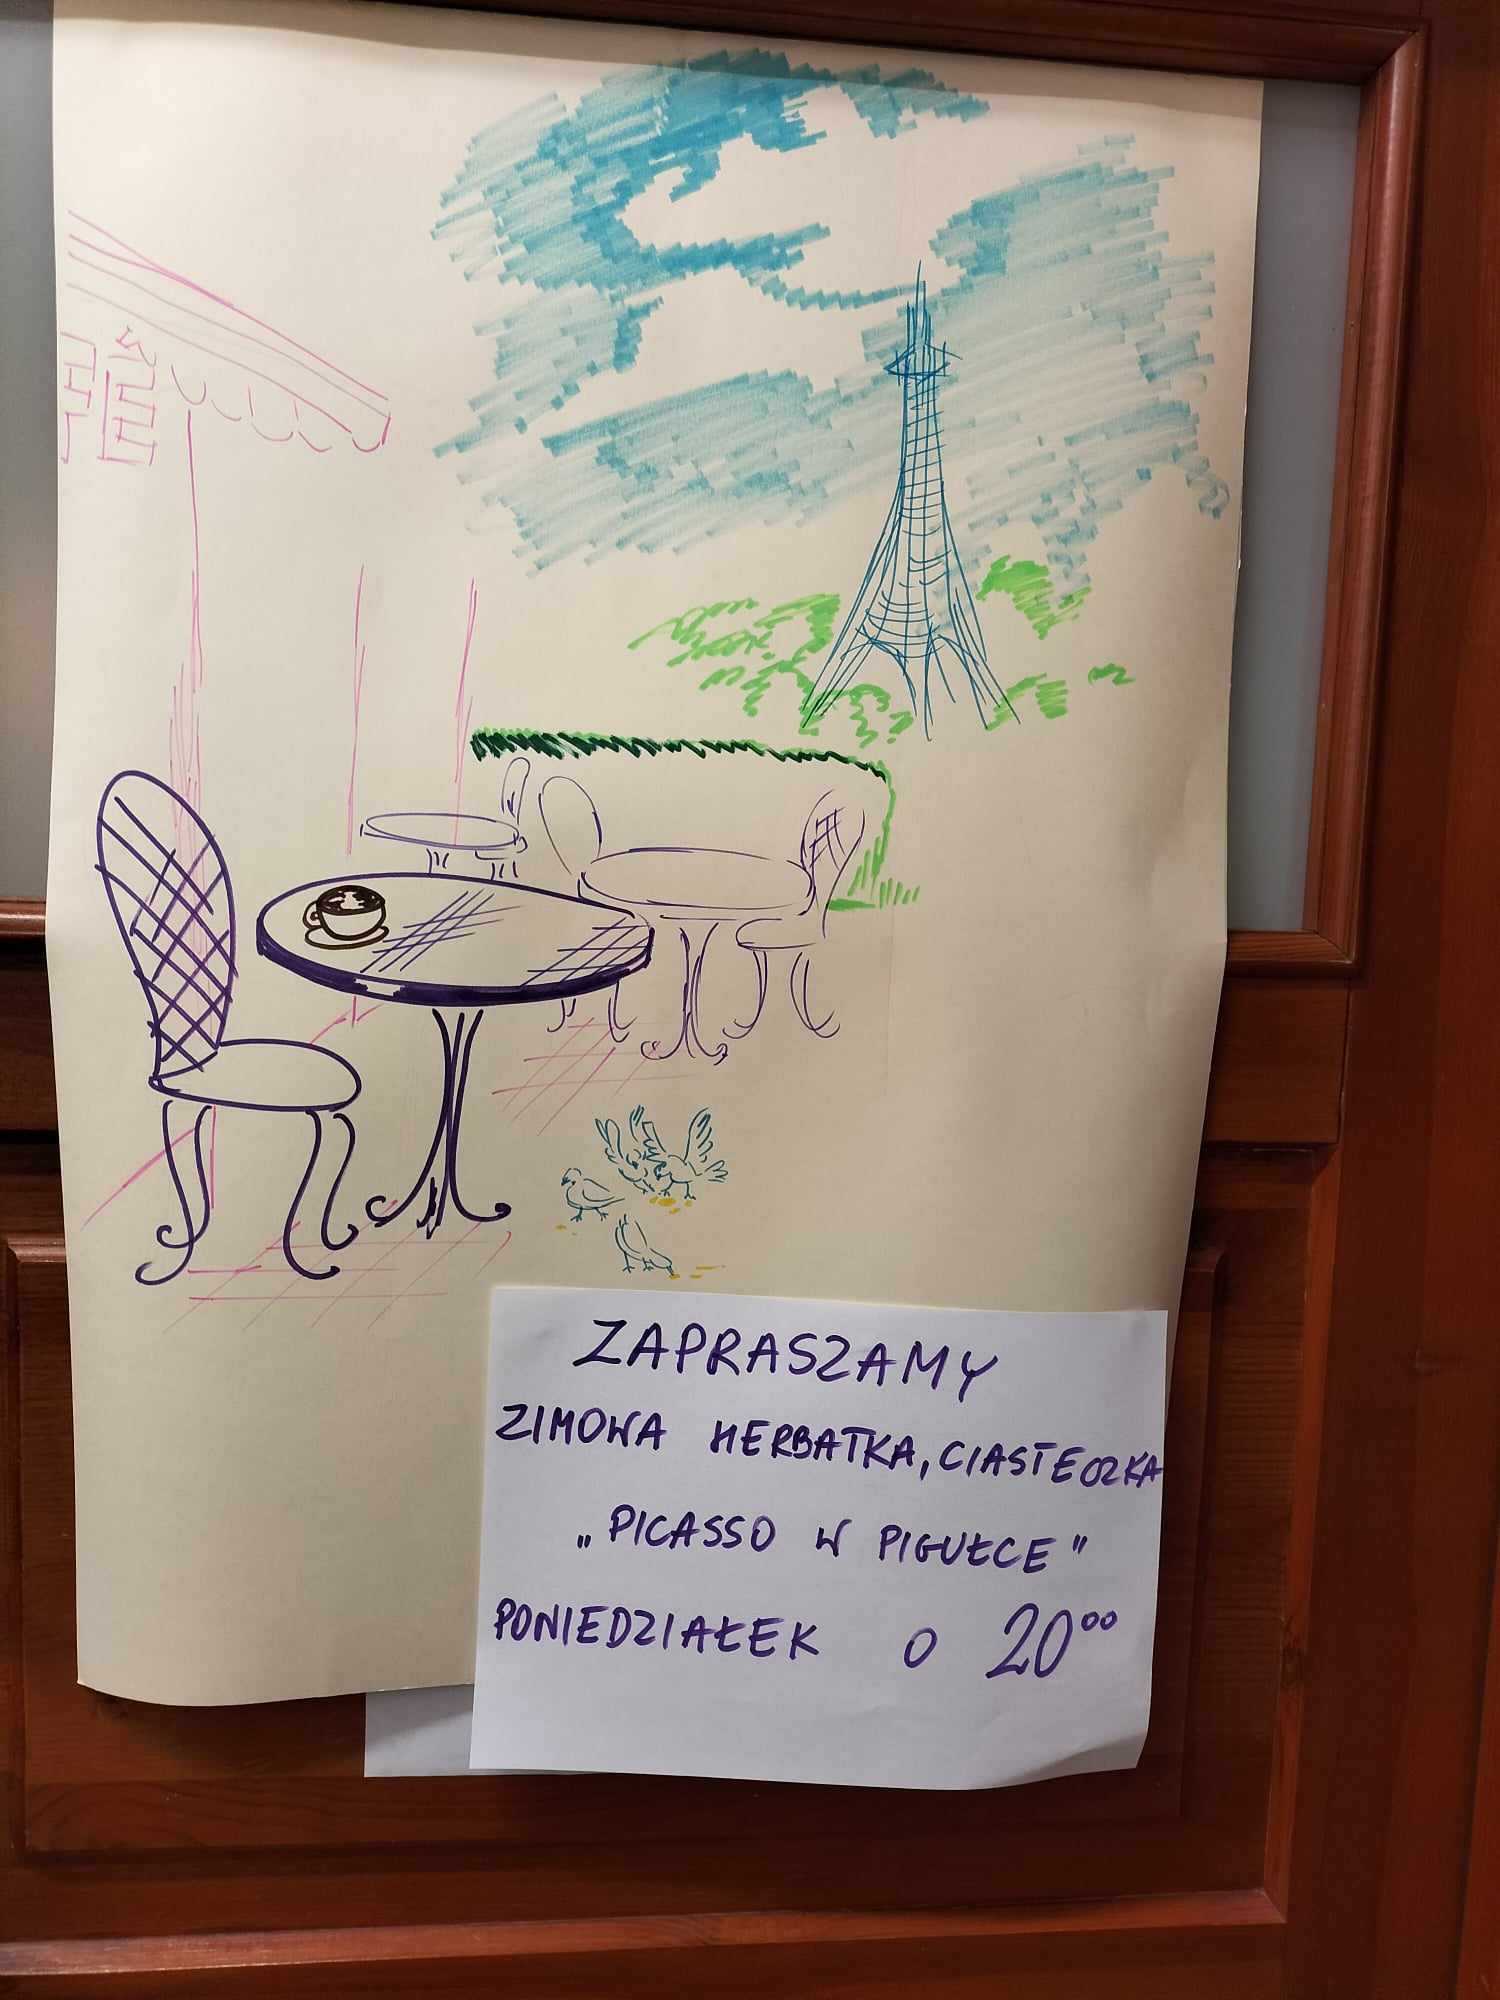 ZAPRASZAMY
ZIMOWA HERBATKA, CIASTECZKA
„PICASSO W PIGUŁCE"
PONIEDZIAŁEK O 20⁰⁰